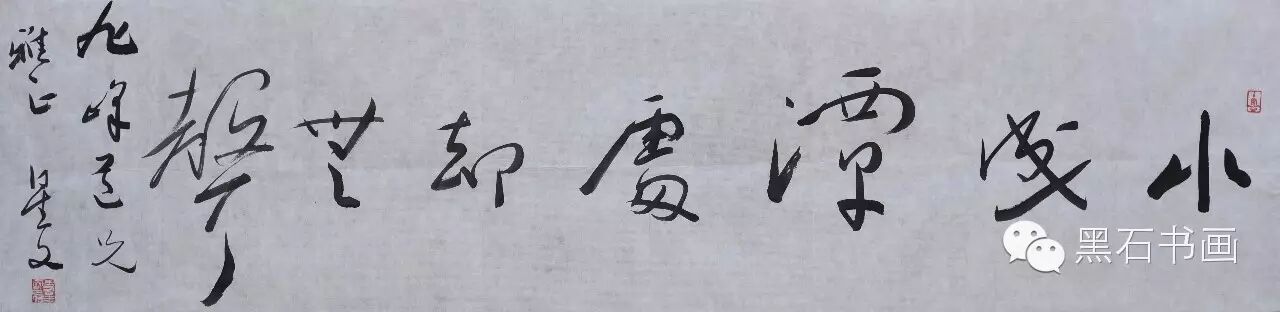 水淺潭處却無聲
九峰道兄
雅正 星文
黑石书画